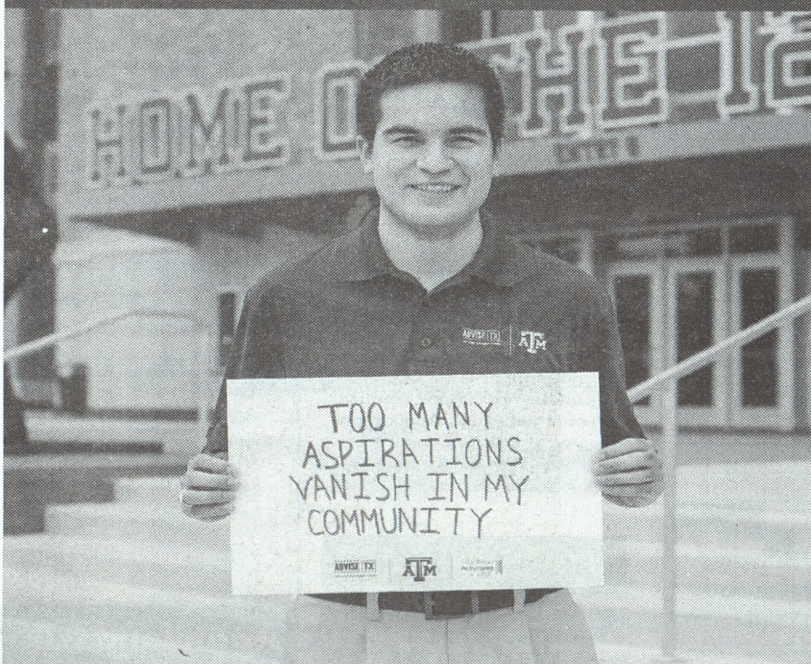 HOME O THE 12
ENTRY
ADVISE TX
ATM
TOO MANY
ASPIRATIONS
VANISH IN MY
COMMUNITY
ADVISE TX
ATM